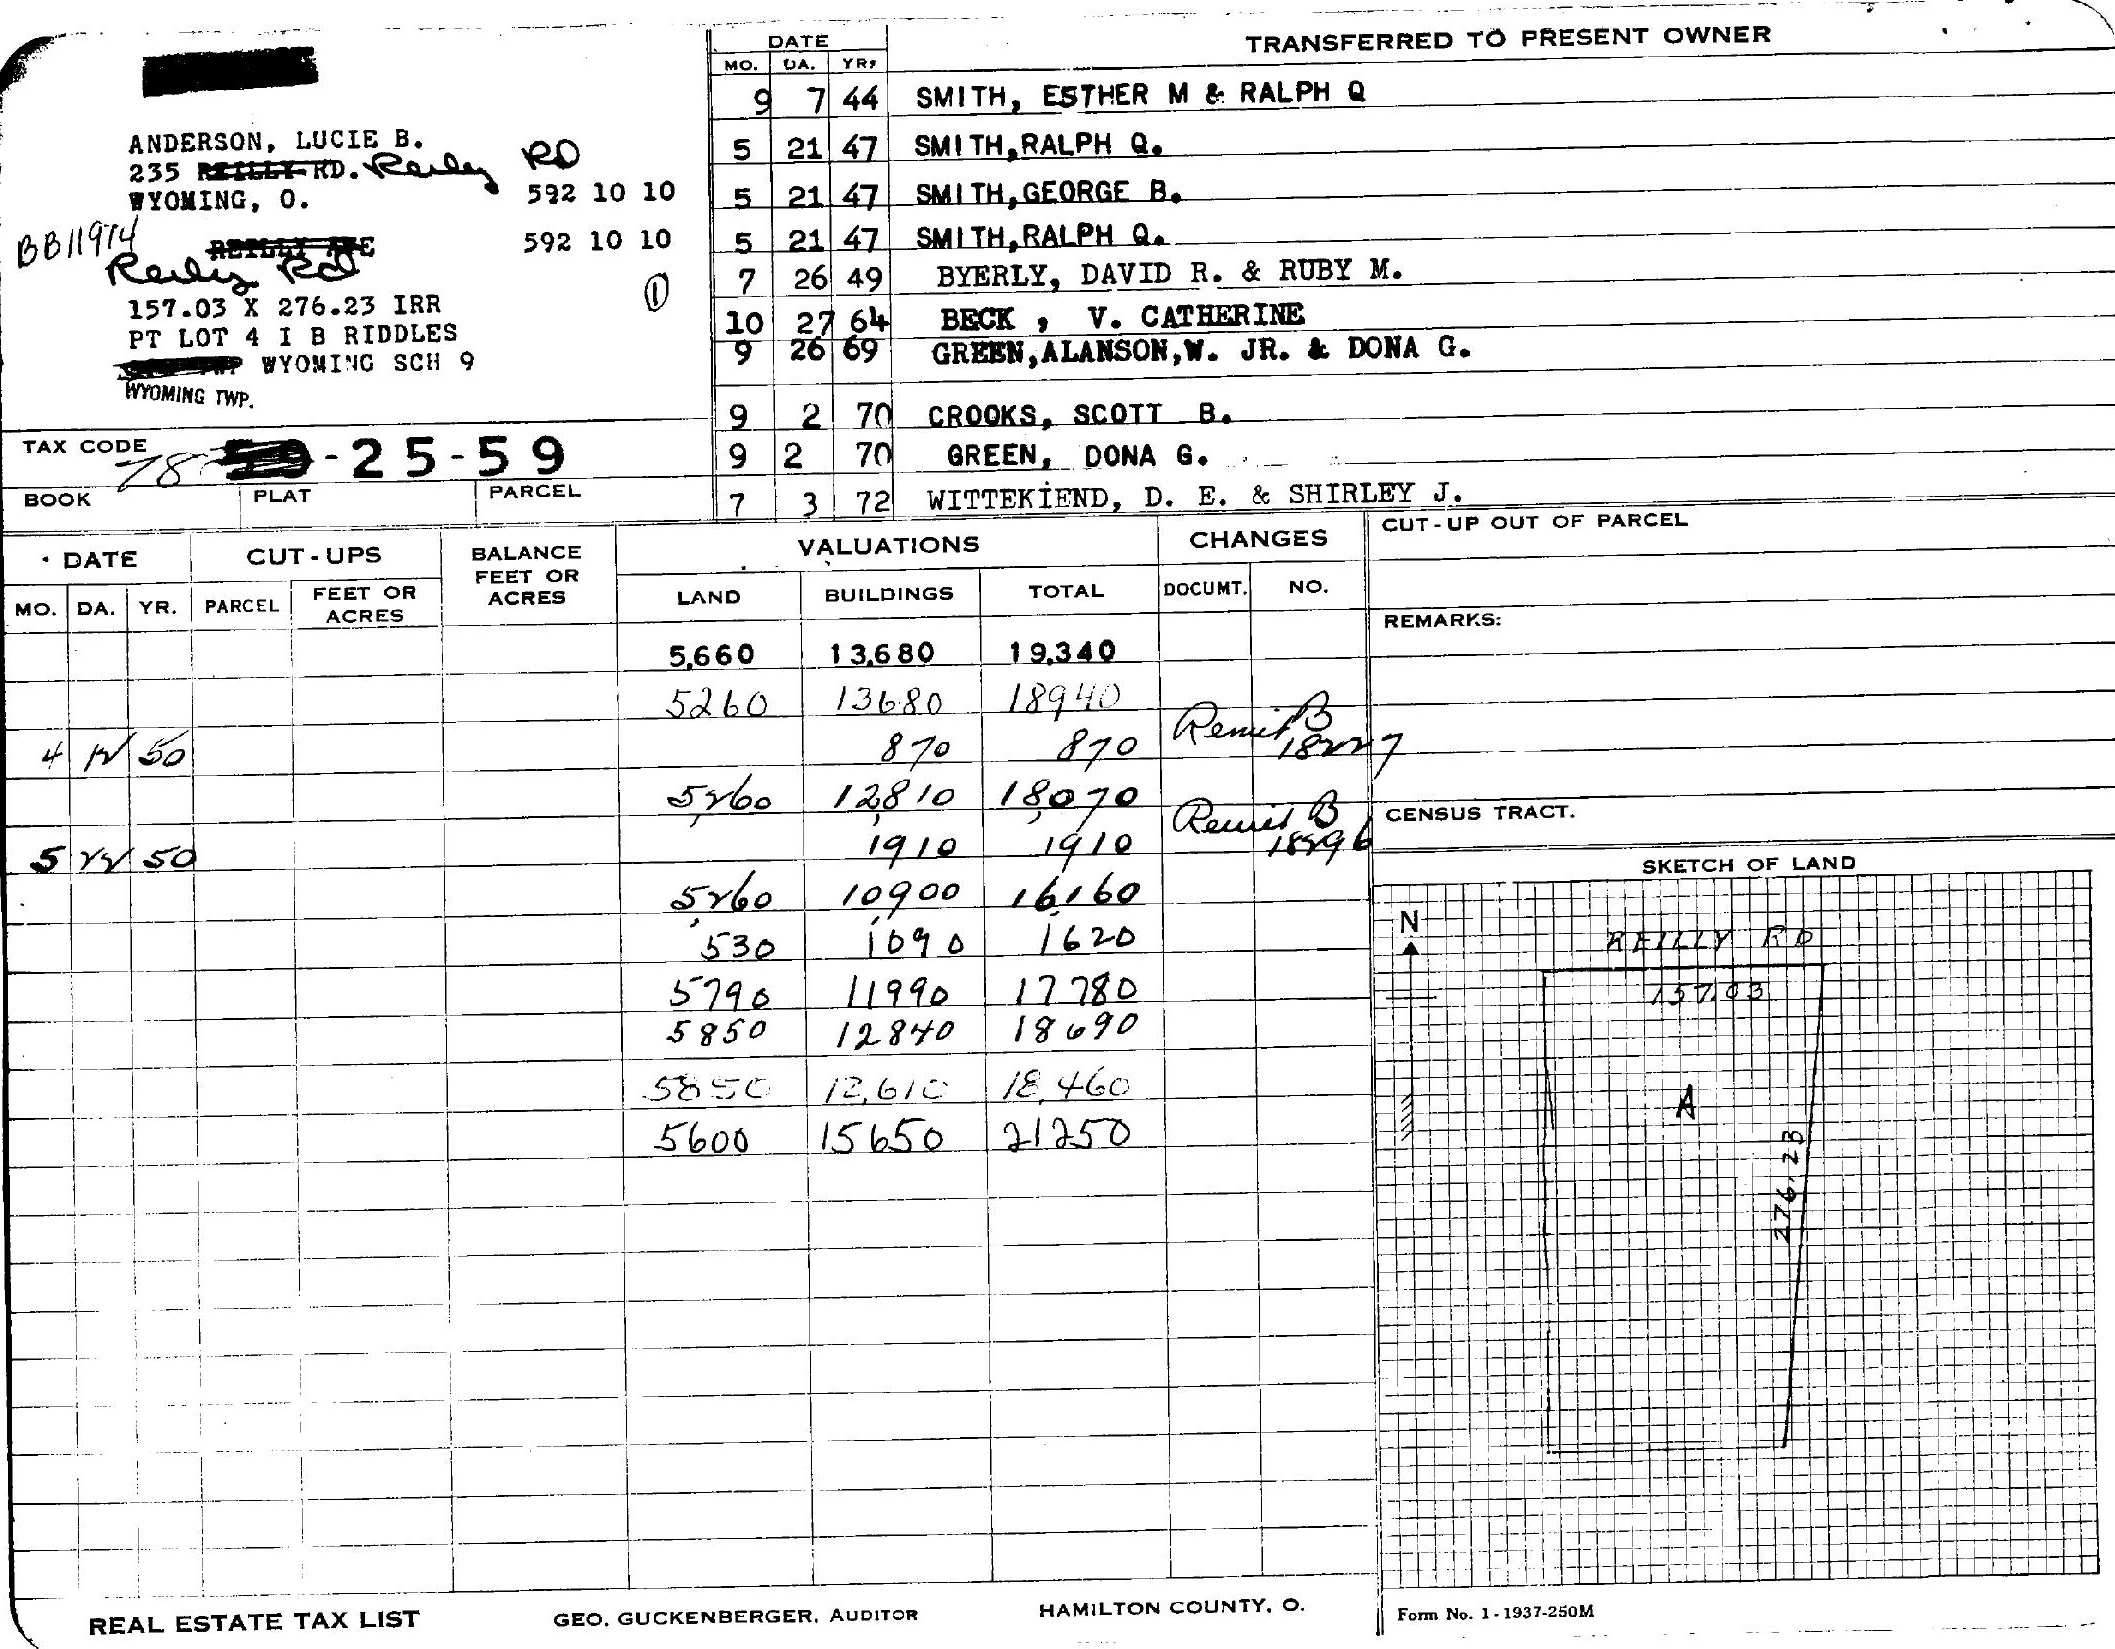 ANDERSON, LUCIE B.
235 REILLY RD. Reily RD
WYOMING, O. 592 10 10
BB11974
REILLY AVE 592 10 10
Reily Rd
157.03 X 276.23 IRR
PT LOT 4 I B RIDDLES
WYOMING SCH 9
WYOMING TWP.
TAX CODE 78 -25-59
BOOK PLAT PARCEL
DATE TRANSFERRED TO PRESENT OWNER
MO. DA. YR.
9 7 44 SMITH, ESTHER M & RALPH Q
5 21 47 SMITH,RALPH Q.
5 21 47 SMITH,GEORGE B.
5 21 47 SMITH,RALPH Q.
7 26 49 BYERLY, DAVID R. & RUBY M.
10 27 64 BECK , V. CATHERINE
9 26 69 GREEN,ALANSON,W. JR. & DONA G.
9 2 70 CROOKS, SCOTT B.
9 2 70 GREEN, DONA G.
7 3 72 WITTEKIEND, D. E. & SHIRLEY J.
DATE CUT-UPS BALANCE FEET OR ACRES VALUATIONS CHANGES
MO. DA. YR. PARCEL FEET OR ACRES LAND BUILDINGS TOTAL DOCUMT. NO.
5,660 13,680 19,340
5260 13680 18940
4 12 50 870 870 Remit B 18227
5260 12,810 18,070
5 22 50 1910 1910 Remit B 18296
5260 10900 16,160
530 1090 1620
5790 11990 17780
5850 12840 18690
5850 12,610 18,460
5600 15650 21250
CUT-UP OUT OF PARCEL
REMARKS:
CENSUS TRACT.
SKETCH OF LAND
N
REILLY RD
157.03
A
276.23
REAL ESTATE TAX LIST GEO. GUCKENBERGER, AUDITOR HAMILTON COUNTY, O. Form No. 1-1937-250M